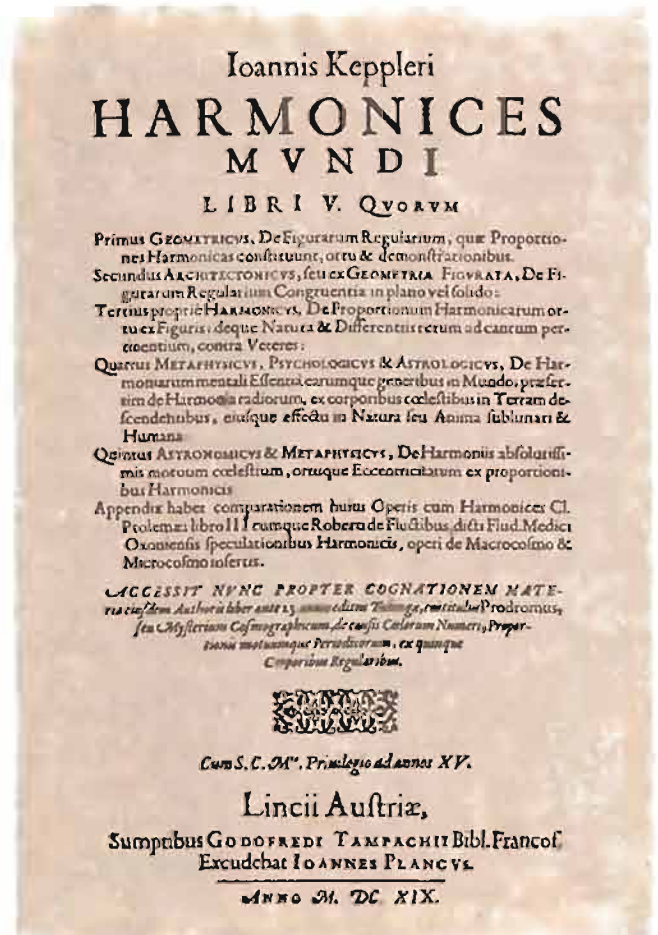 Ioannis Keppleri
HARMONICES
MVNDI
LIBRI V. QVORVM
Primus GEOMETRICVS, De Figurarum Regularium, quæ Proportio-
nes Harmonicas constituunt, ortu & demonstrationibus.
Secundus ARCHITECTONICVS, seu ex GEOMETRIA FIGVRATA, De Fi-
gurarum Regularium Congruentia in plano vel solido:
Tertius proprie HARMONICVS, De Proportionum Harmonicarum or-
tu ex Figuris; deque Natura & Differentiis rerum ad cantum per-
tinentium, contra Veteres:
Quartus METAPHYSICVS, PSYCHOLOGICVS & ASTROLOGICVS, De Har-
moniarum mentali Essentia earumque generibus in Mundo, præser-
tim de Harmonia radiorum, ex corporibus cœlestibus in Terram de-
scendentibus, eiusque effectu in Natura seu Anima sublunari &
Humana
Quintus ASTRONOMICVS & METAPHYSICVS, De Harmoniis absolutissi-
mis motuum cœlestium, ortuque Eccentricitatum ex proportioni-
bus Harmonicis
Appendix habet comparationem huius Operis cum Harmonices Cl.
Ptolemæi libro III cumque Roberti de Fluctibus, dicti Flud. Medici
Oxoniensis speculationibus Harmonicis, operi de Macrocosmo &
Microcosmo insertis.
ACCESSIT NVNC PROPTER COGNATIONEM MATE-
riæ eiusdem Authoris liber ante 23 annos editus Tubingæ, cui titulus Prodromus,
seu Mysterium Cosmographicum, de causis Cœlorum Numeri, Propor-
tionis motuumque Periodicorum, ex quinque
Corporibus Regularibus.
Cum S. C. Mtis. Privilegio ad annos XV.
Lincii Austriæ,
Sumptibus GODOFREDI TAMPACHII Bibl. Francof.
Excudebat IOANNES PLANCVS.
ANNO M. DC XIX.